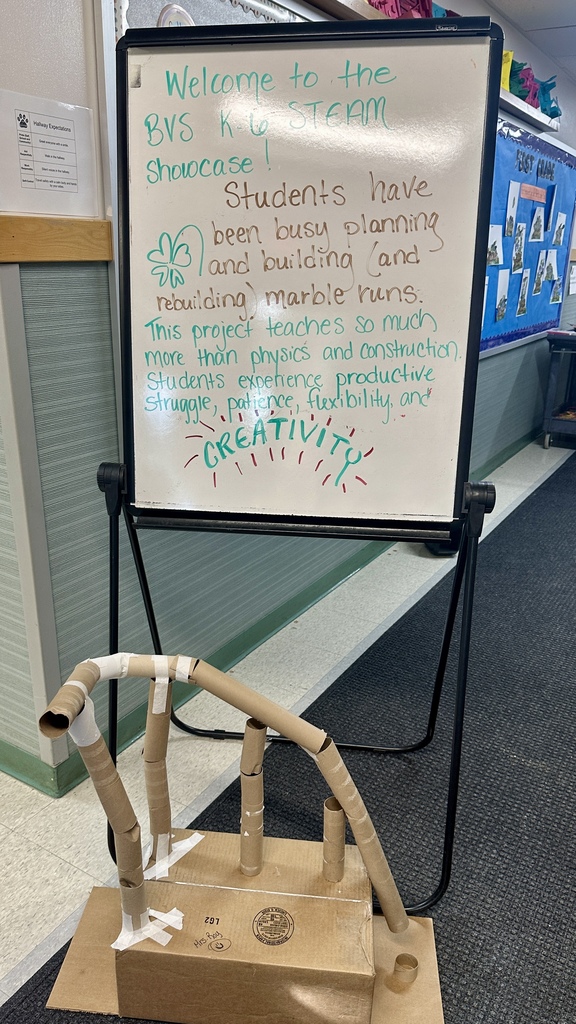 Welcome to the
BVS K-6 STEAM
Showcase!
Students have
been busy planning
and building (and
rebuilding) marble runs.
This project teaches so much
more than physics and construction.
Students experience productive
struggle, patience, flexibility, and
CREATIVITY
Hallway Expectations
LG2